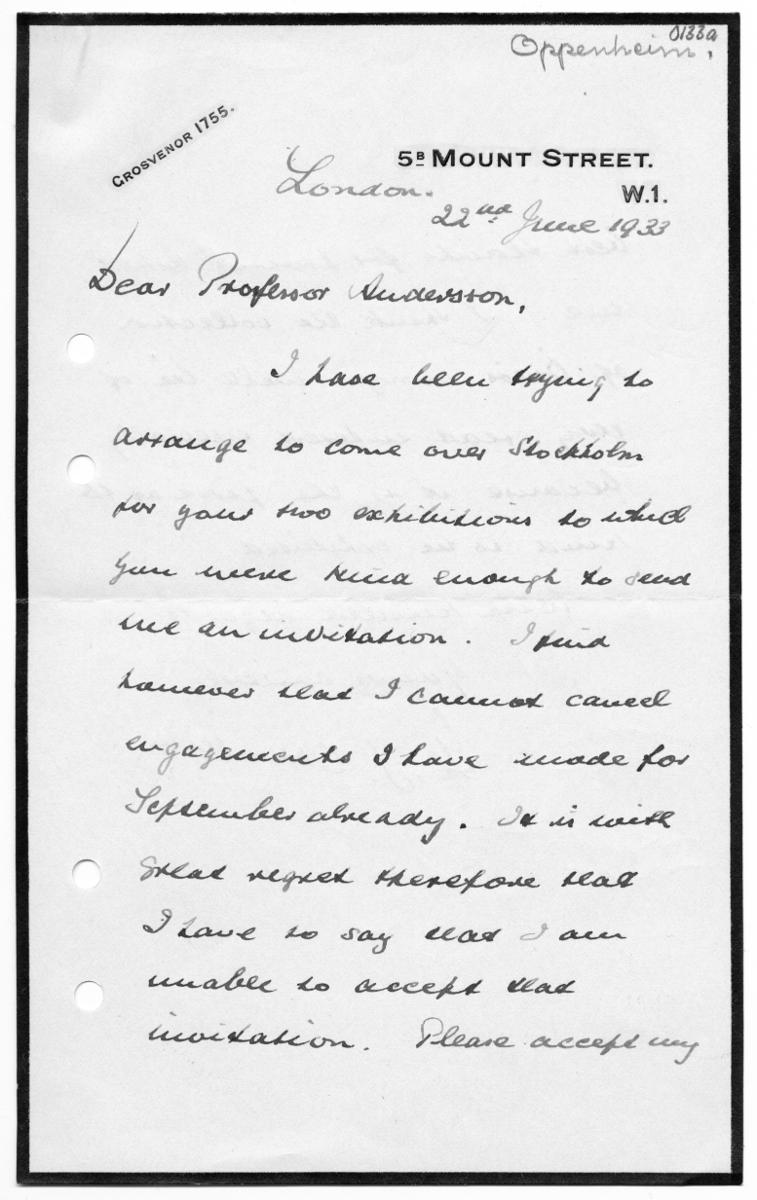 0133a
Oppenheim.
GROSVENOR 1755.
5B MOUNT STREET.
London. W.1.
22nd June 1933
Dear Professor Andersson,
I have been trying to
arrange to come over Stockholm
for your two exhibitions to which
you were kind enough to send
me an invitation. I find
however that I cannot cancel
engagements I have made for
September already. It is with
great regret therefore that
I have to say that I am
unable to accept that
invitation. Please accept my